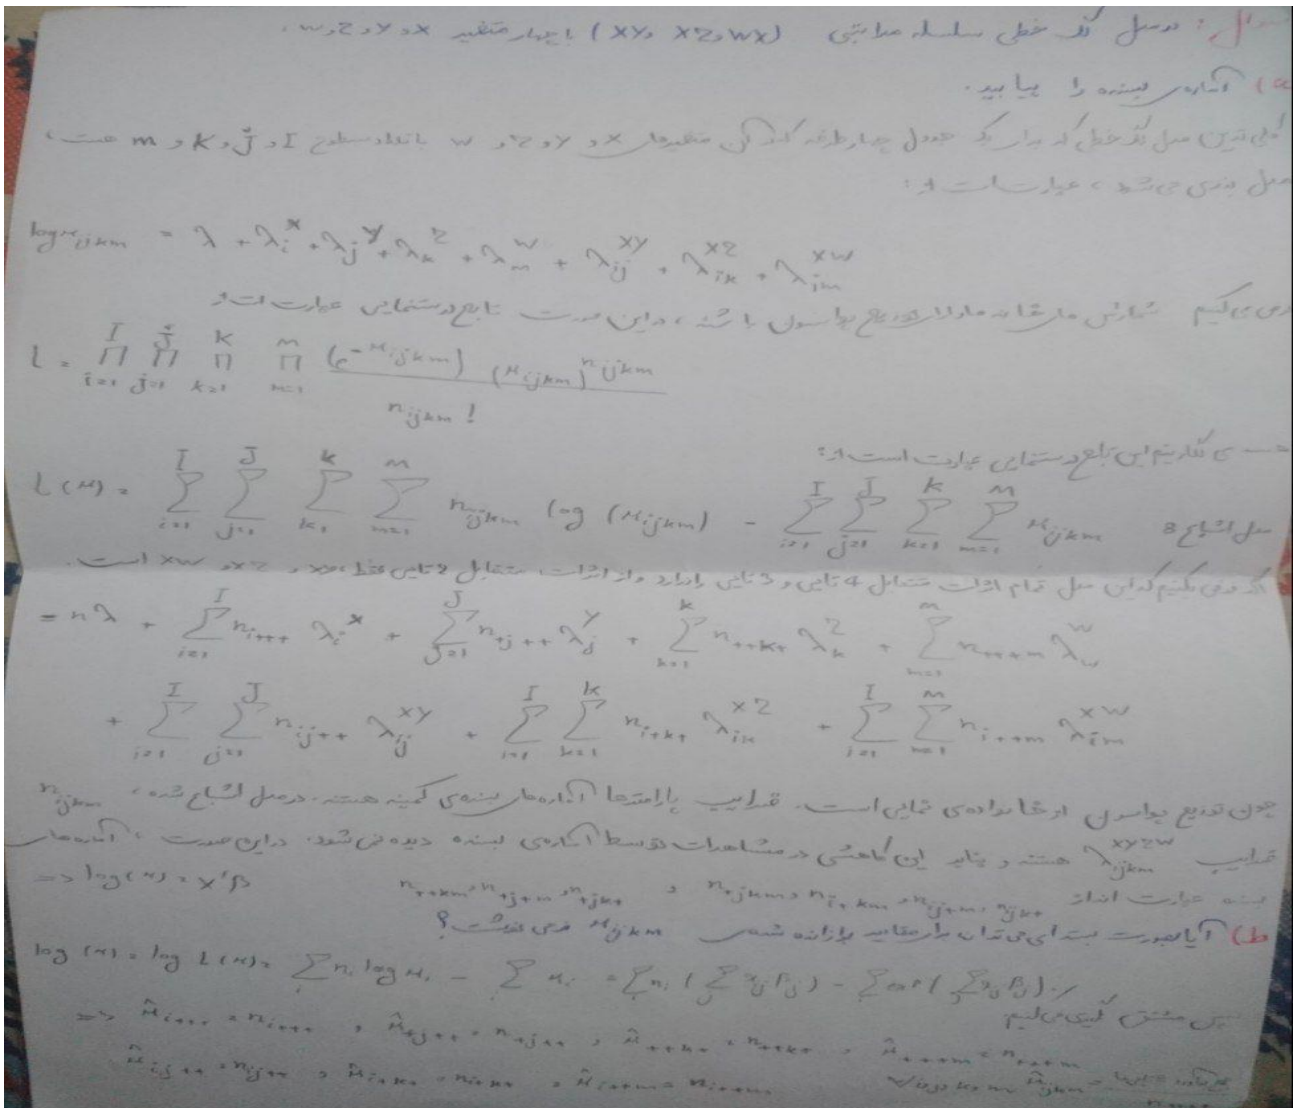 سوال: در مدل لگ خطی سلسله مراتبی (XY, XZ, WX) با چهار متغیر X و Y و Z و W،
a) آماره‌ی بسنده را بیابید.
کلی ترین مدل لگ خطی که برای یک جدول چهار طرفه که در آن متغیرهای X و Y و Z و W با تعداد سطوح I و J و K و m است،
مدل بندی می شود، عبارت است از:
log μijkm = λ + λiX + λjY + λkZ + λmW + λijXY + λikXZ + λimXW
می کنیم شمارش های خانه ها دارای توزیع پواسون باشند، در این صورت تابع درستنمایی عبارت است از
L = ∏i=1I ∏j=1J ∏k=1K ∏m=1m (e-μijkm) (μijkm)nijkm / nijkm!
لگاریتم این تابع درستنمایی عبارت است از:
L(μ) = ∑i=1I ∑j=1J ∑k=1K ∑m=1m nijkm log(μijkm) - ∑i=1I ∑j=1J ∑k=1K ∑m=1m μijkm مدل اشباع
اگر فرض کنیم که این مدل تمام اثرات متقابل 4 تایی و 3 تایی را ندارد و از اثرات متقابل 2 تایی فقط XY و XZ و XW است.
= nλ + ∑i=1I ni+++ λiX + ∑j=1J n+j++ λjY + ∑k=1K n++k+ λkZ + ∑m=1m n+++m λwW
+ ∑i=1I ∑j=1J nij++ λijXY + ∑i=1I ∑k=1K ni+k+ λikXZ + ∑i=1I ∑m=1m ni++m λimXW
چون توزیع پواسون از خانواده‌ی نمایی است. ضرایب پارامترها آماره‌های بسنده‌ی کمینه هستند. در مدل اشباع شده، nijkm
ضرایب λijkmXYZW هستند و بنابر این کاهشی در مشاهدات توسط آماره‌ی بسنده دیده نمی شود. در این صورت، آماره‌های
بسنده عبارت اند از n+jkm, ni+km, nij+m, nijk+ و n++km, n+j+m, n+jk+ => log(μ) = X'β
b) آیا بصورت بسته ای می توان برای مقادیر برازانده شده‌ی μijkm فرمی نوشت؟
log(μ) = log L(μ) = ∑i ni log μi - ∑i μi = ∑i ni (∑j xij βj) - ∑ exp(∑j xij βj)
سپس مشتق گیری می کنیم
=> μ̂i+++ = ni+++ , μ̂+j++ = n+j++ , μ̂++k+ = n++k+ , μ̂+++m = n+++m
μ̂ij++ = nij++ , μ̂i+k+ = ni+k+ , μ̂i++m = ni++m